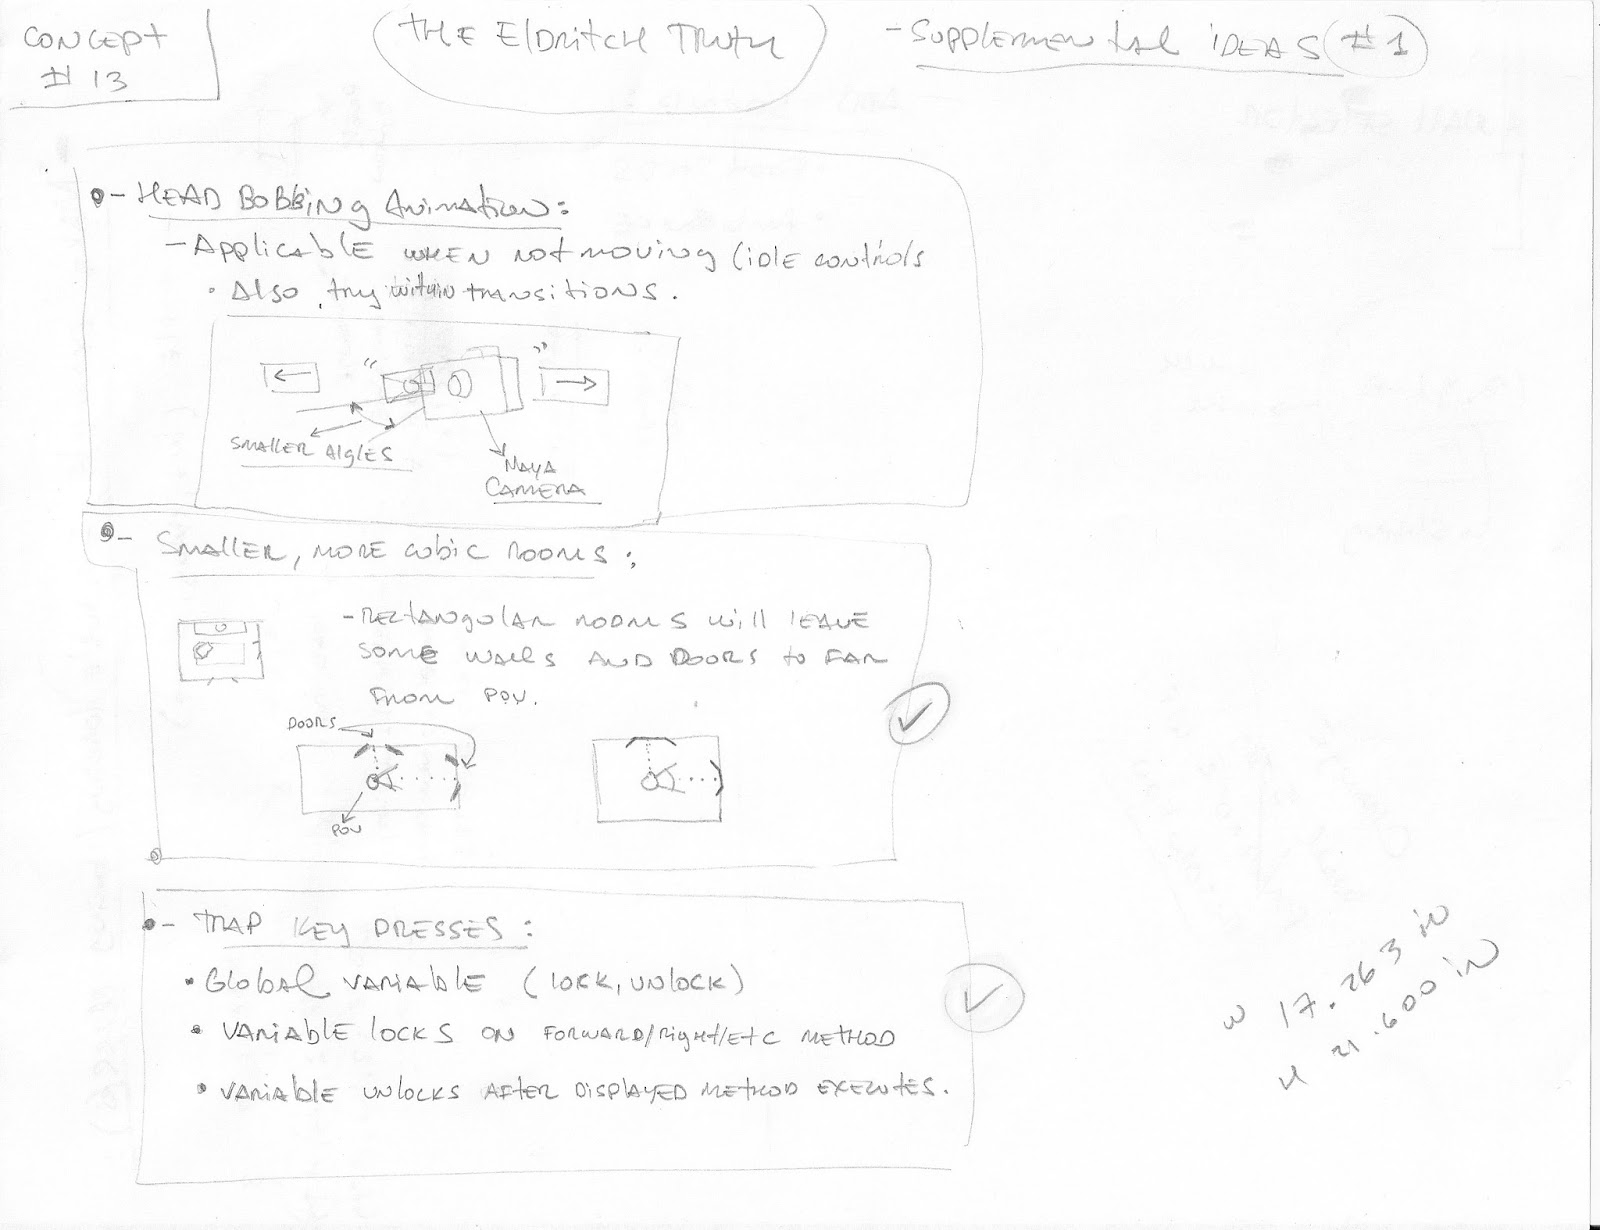 CONCEPT
# 13
THE ELDRITCH TRUTH
- SUPPLEMENTAL IDEAS #1
- HEAD BOBBING ANIMATION:
- APPLICABLE WHEN NOT MOVING (IDLE CONTROLS
• ALSO, TRY WITHIN TRANSITIONS.
" "
SMALLER AIGLES
MAYA
CAMERA
- SMALLER, MORE CUBIC ROOMS:
- RECTANGULAR ROOMS WILL LEAVE
SOME WALLS AND DOORS TO FAR
FROM POV.
DOORS
POV
- TRAP KEY PRESSES:
• GLOBAL VARIABLE (LOCK, UNLOCK)
• VARIABLE LOCKS ON FORWARD/RIGHT/ETC METHOD
• VARIABLE UNLOCKS AFTER DISPLAYED METHOD EXECUTES.
W 17.263 IN
H 21.600 IN